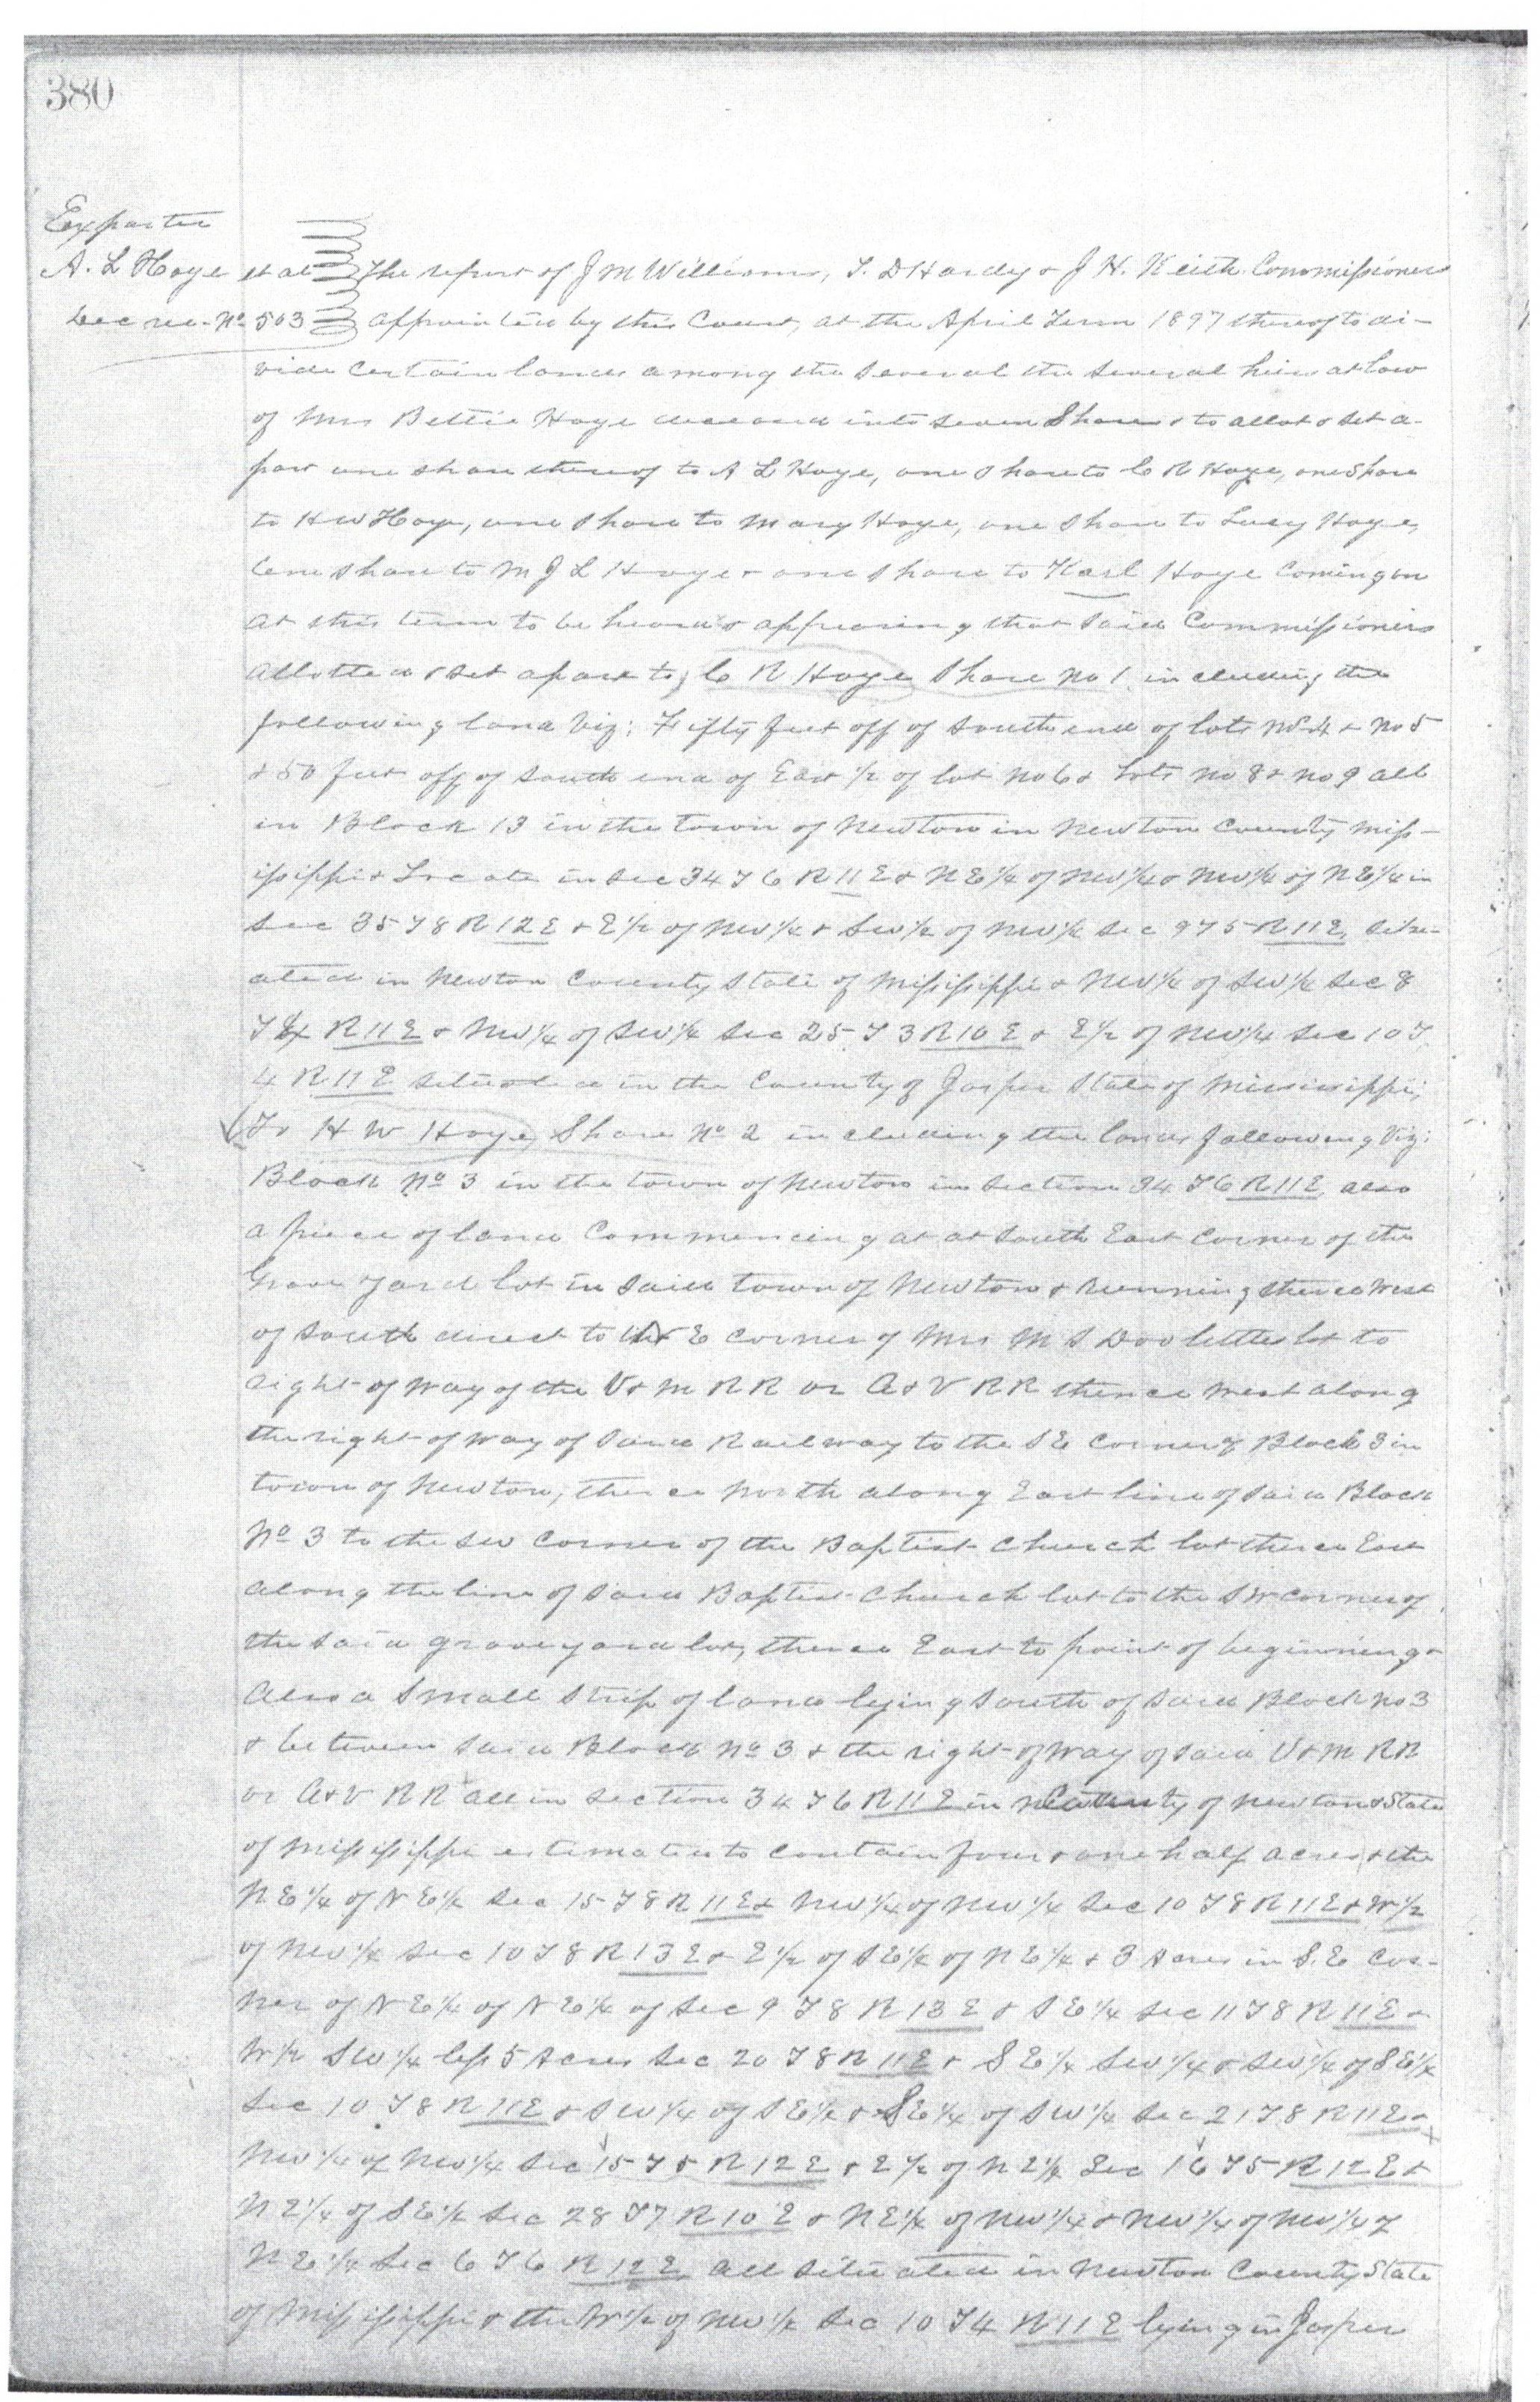 380
Exparte
A. L Hoye et als The report of J M Williams, T. D Hardy & J H. Keith Commissioners
Decree No 503 appointed by this Court, at the April Term 1897 thereof to di-
vide certain lands among the several the several heirs at law
of Mrs Bettie Hoye deceased into seven Shares & to allot & set a-
part one share thereof to A L Hoye, one share to C R Hoye, one share
to H W Hoye, one share to Mary Hoye, one share to Lucy Hoye,
one share to M J L Hoye & one share to Karl Hoye Coming on
at this term to be heard & appearing that said Commissioners
allotted & set apart to C R Hoye Share No 1 including the
following land viz: Fifty feet off of South end of lots No 4 & No 5
& 50 feet off of South end of East 1/2 of lot No 6 & Lots No 8 & No 9 all
in Block 13 in the town of Newton in Newton County Miss-
issippi & Locate in Sec 34 T 6 R 11 E & N E 1/4 of NW 1/4 & NW 1/4 of N E 1/4 in
Sec 35 T 8 R 12 E & E 1/2 of NW 1/4 & SW 1/4 of NW 1/4 Sec 9 T 5 R 11 E, situ-
ated in Newton County State of Mississippi & NW 1/4 of SW 1/4 Sec 8
T 4 R 11 E & NW 1/4 of SW 1/4 Sec 25 T 3 R 10 E & E 1/2 of NW 1/4 Sec 10 T
4 R 11 E situated in the County of Jasper State of Mississippi;
To H W Hoye, Share No 2 including the lands following viz:
Block No 3 in the town of Newton in Section 34 T 6 R 11 E, also
a piece of land Commencing at at South East Corner of the
Grave yard lot in said town of Newton & running thence West
of South direct to E Corner of Mrs M S Doolittle lot to
right-of way of the V & M R R or A & V R R thence west along
the right-of way of said Railway to the S E Corner of Block 3 in
town of Newton, thence north along East line of said Block
No 3 to the SW Corner of the Baptist Church lot thence East
along the line of said Baptist Church lot to the SW Corner of
the said graveyard lot, thence East to point of beginning &
Also a Small Strip of land lying South of said Block No 3
& between said Block No 3 & the right-of way of said V & M R R
or A & V R R all in Section 34 T 6 R 11 E in County of Newton & State
of Mississippi estimated to contain four & one half acres & the
N E 1/4 of N E 1/4 Sec 15 T 8 R 11 E & NW 1/4 of NW 1/4 Sec 10 T 8 R 11 E & W 1/2
of NW 1/4 Sec 10 T 8 R 13 E & E 1/2 of S E 1/4 of N E 1/4 & 3 Acres in S. E Cor-
ner of N E 1/4 of N E 1/4 of Sec 9 T 8 R 13 E & S E 1/4 Sec 11 T 8 R 11 E &
W 1/2 SW 1/4 less 5 Acres Sec 20 T 8 R 11 E & S E 1/4 SW 1/4 & SW 1/4 of S E 1/4
Sec 10 T 8 R 11 E & SW 1/4 of S E 1/4 & S E 1/4 of SW 1/4 Sec 21 T 8 R 11 E &
NW 1/4 of NW 1/4 Sec 15 T 5 R 12 E & E 1/2 of N E 1/4 Sec 16 T 5 R 12 E &
N E 1/4 of S E 1/4 Sec 28 T 7 R 10 E & N E 1/4 of NW 1/4 & NW 1/4 of NW 1/4 of
N E 1/4 Sec 6 T 6 R 12 E, all situated in Newton County State
of Mississippi & the W 1/2 of NW 1/4 Sec 10 T 4 R 11 E lying in Jasper